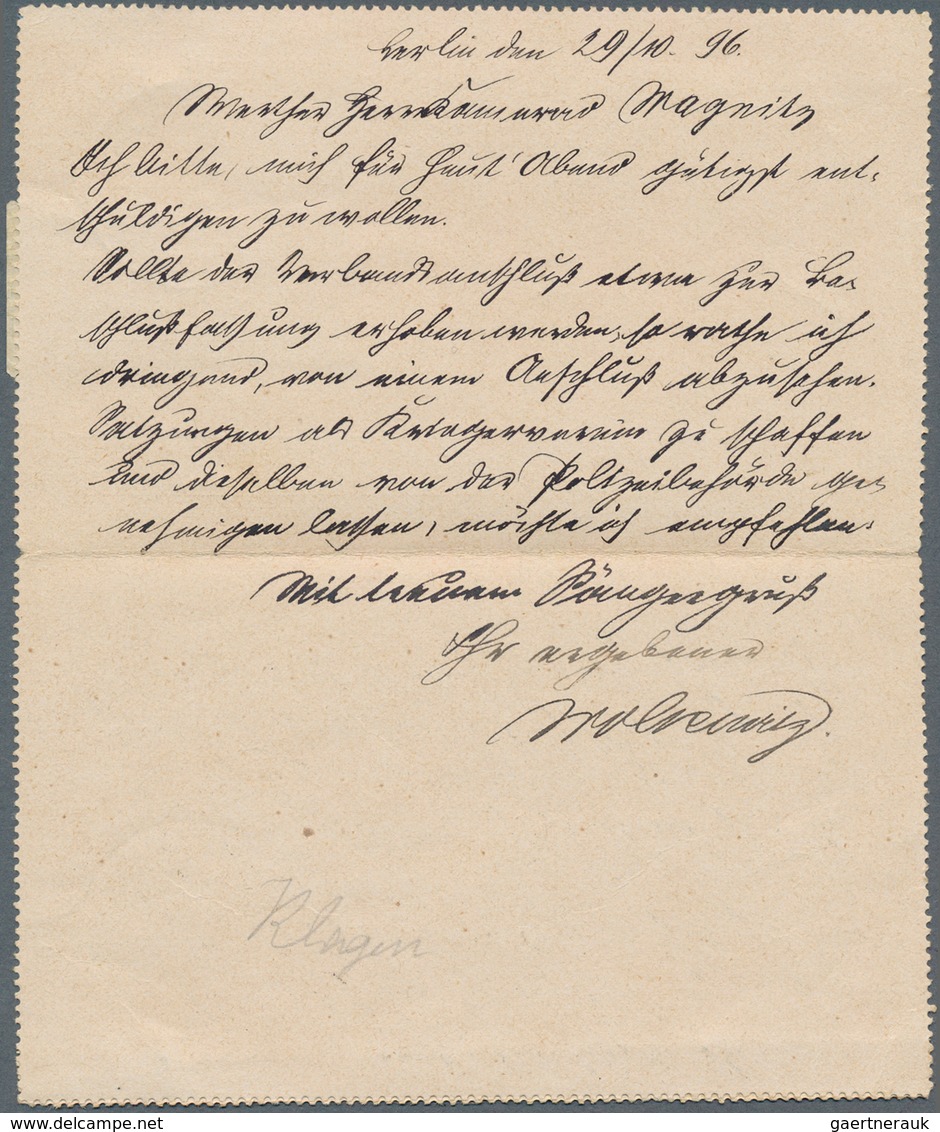 Berlin den 29/10. 96.
Werther Herr Kamerad Wagnitz
Ich bitte, mich für heut' Abend gütigst ent-
schuldigen zu wollen.
Sollte der Verbandsanschluß etwa zur Be-
schlußfassung erhoben werden, so rathe ich
dringend, von einem Anschluß abzusehen.
Satzungen als Kriegerverein zu schaffen
und dieselben von der Polizeibehörde ge-
nehmigen lassen, möchte ich empfehlen.
Mit treuem Sängergruß
Ihr ergebener
Klagen
delcampe.net
gaertnerauk